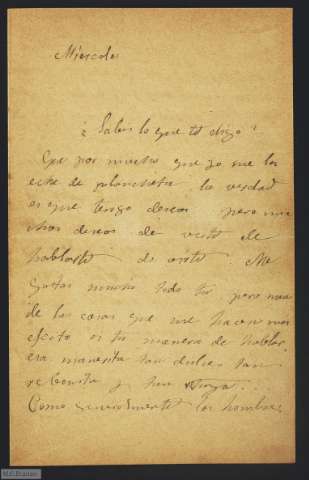 Miércoles
¿Sabes lo que te digo?
Que por mucho que yo me las
eche de planchista, la verdad
es que tengo deseos pero mu
chos deseos de verte de
hablarte de oirte. Me
gustas mucho todo tu, pero una
de las cosas que me hacen mas
efecto es tu manera de hablar,
esa manerita tan dulce, tan
rebonita y tan tuya...
Como generalmente los hombres